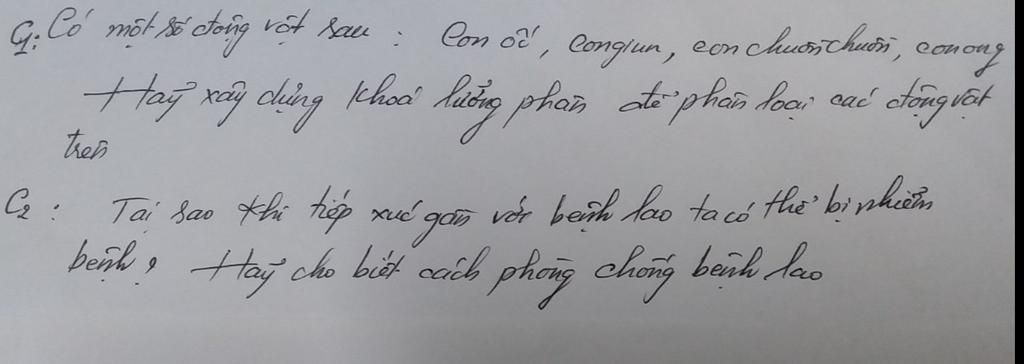 C1: Có một số động vật sau : Con ốc, Con giun, con chuồn chuồn, con ong
Hãy xây dựng khoá lưỡng phân để phân loại các động vật
trên
C2 : Tại sao khi tiếp xúc gần với bệnh lao ta có thể bị nhiễm
bệnh, Hãy cho biết cách phòng chống bệnh lao